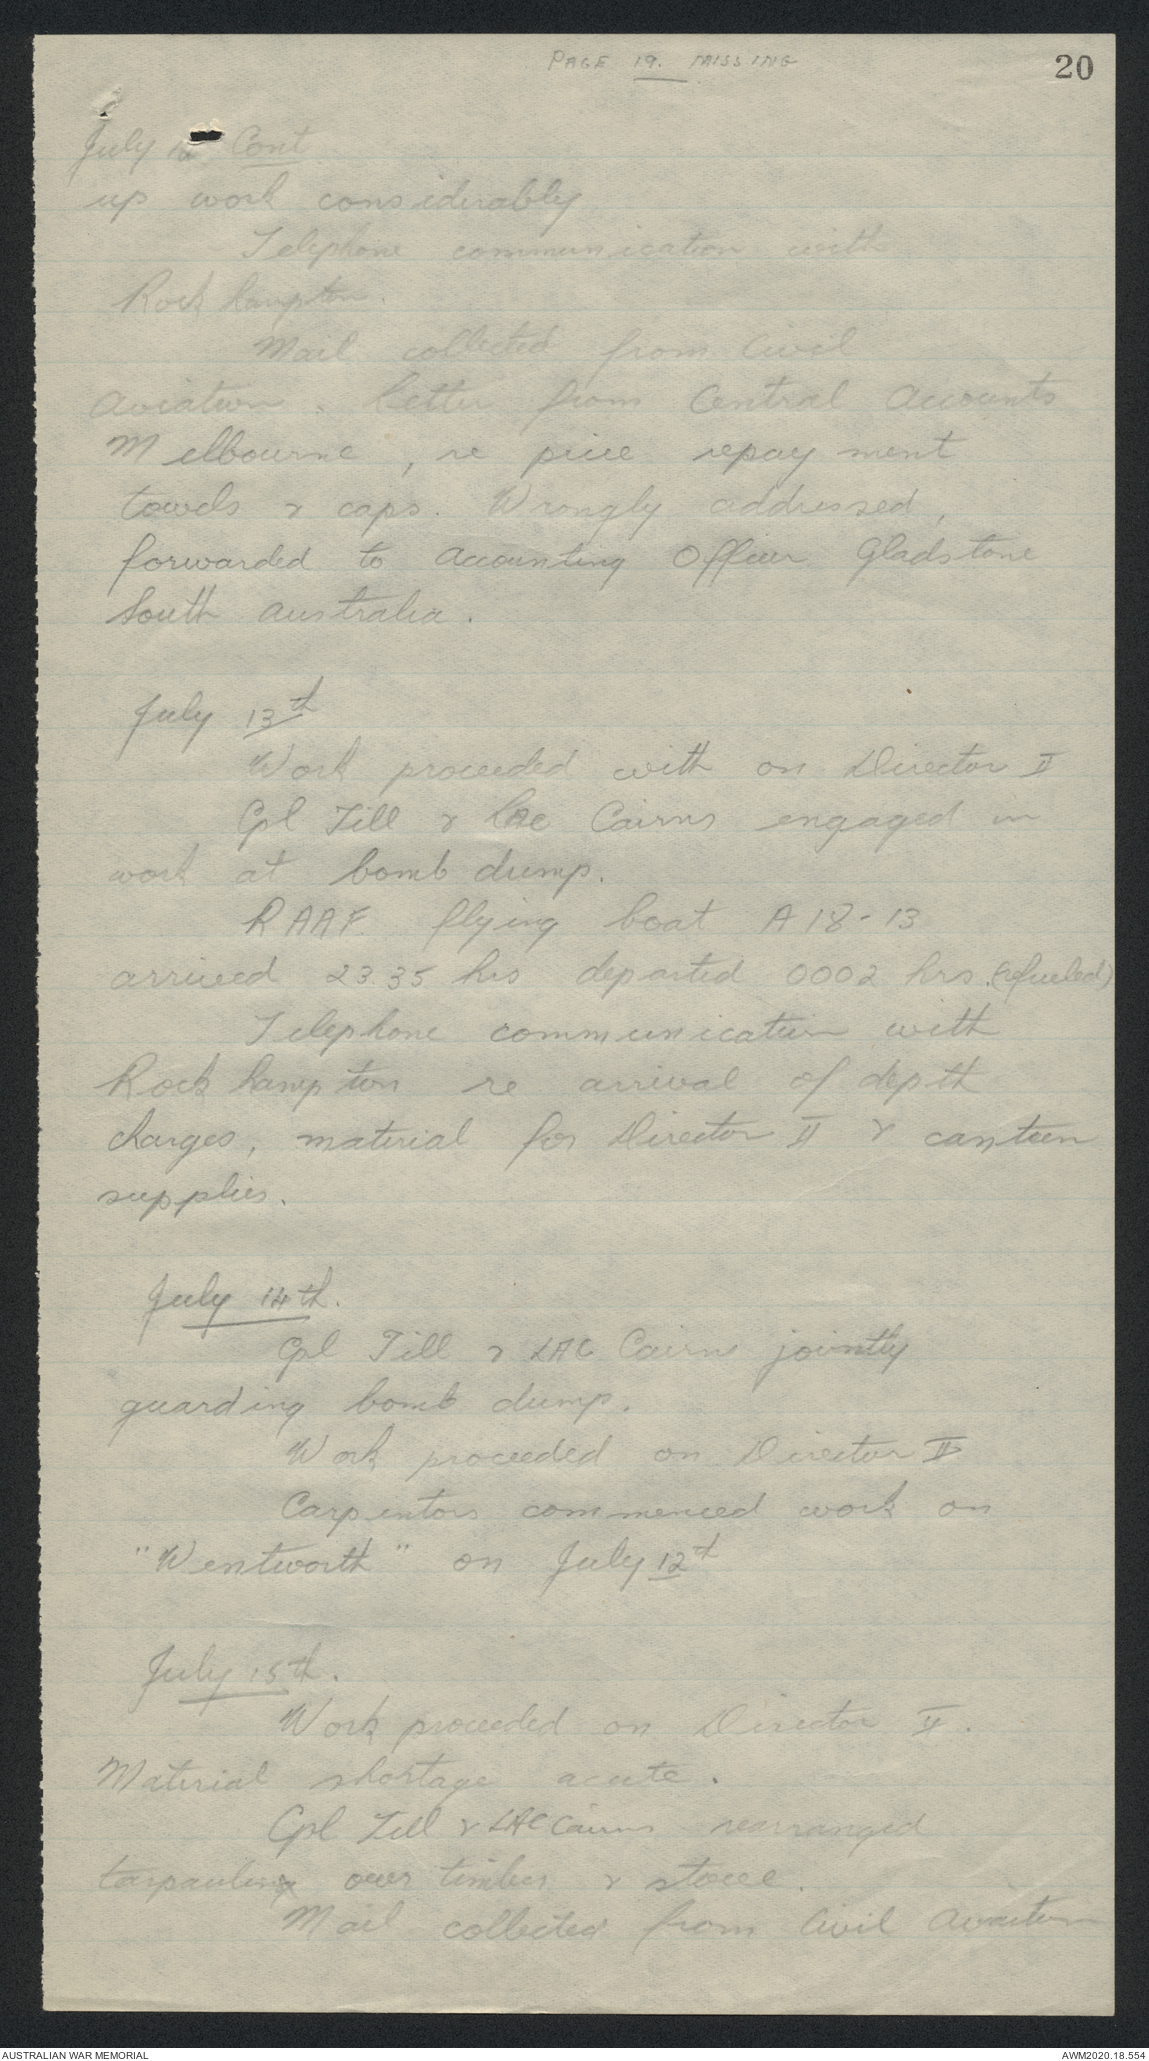 PAGE 19. MISSING
20
July 12 Cont
up work considerably
Telephone communication with
Rockhampton.
Mail collected from Civil
Aviation. Letter from Central Accounts
Melbourne, re piece repayment
towels & caps. Wrongly addressed,
forwarded to Accounting Officer Gladstone
South Australia.
July 13th
Work proceeded with on Director II
Cpl Till & LAC Cairns engaged in
work at bomb dump.
RAAF flying boat A18-13
arrived 23.35 hrs departed 0002 hrs. (refueled)
Telephone communication with
Rockhampton re arrival of depth
charges, material for Director II & canteen
supplies.
July 14th.
Cpl Till & LAC Cairns jointly
guarding bomb dump.
Work proceeded on Director II
Carpentors commenced work on
"Wentworth" on July 12t
July 15th.
Work proceeded on Director II.
Material shortage acute.
Cpl Till & LAC Cairns rearranged
tarpauling over timber & stove.
Mail collected from Civil Aviation
AUSTRALIAN WAR MEMORIAL
AWM2020.18.554